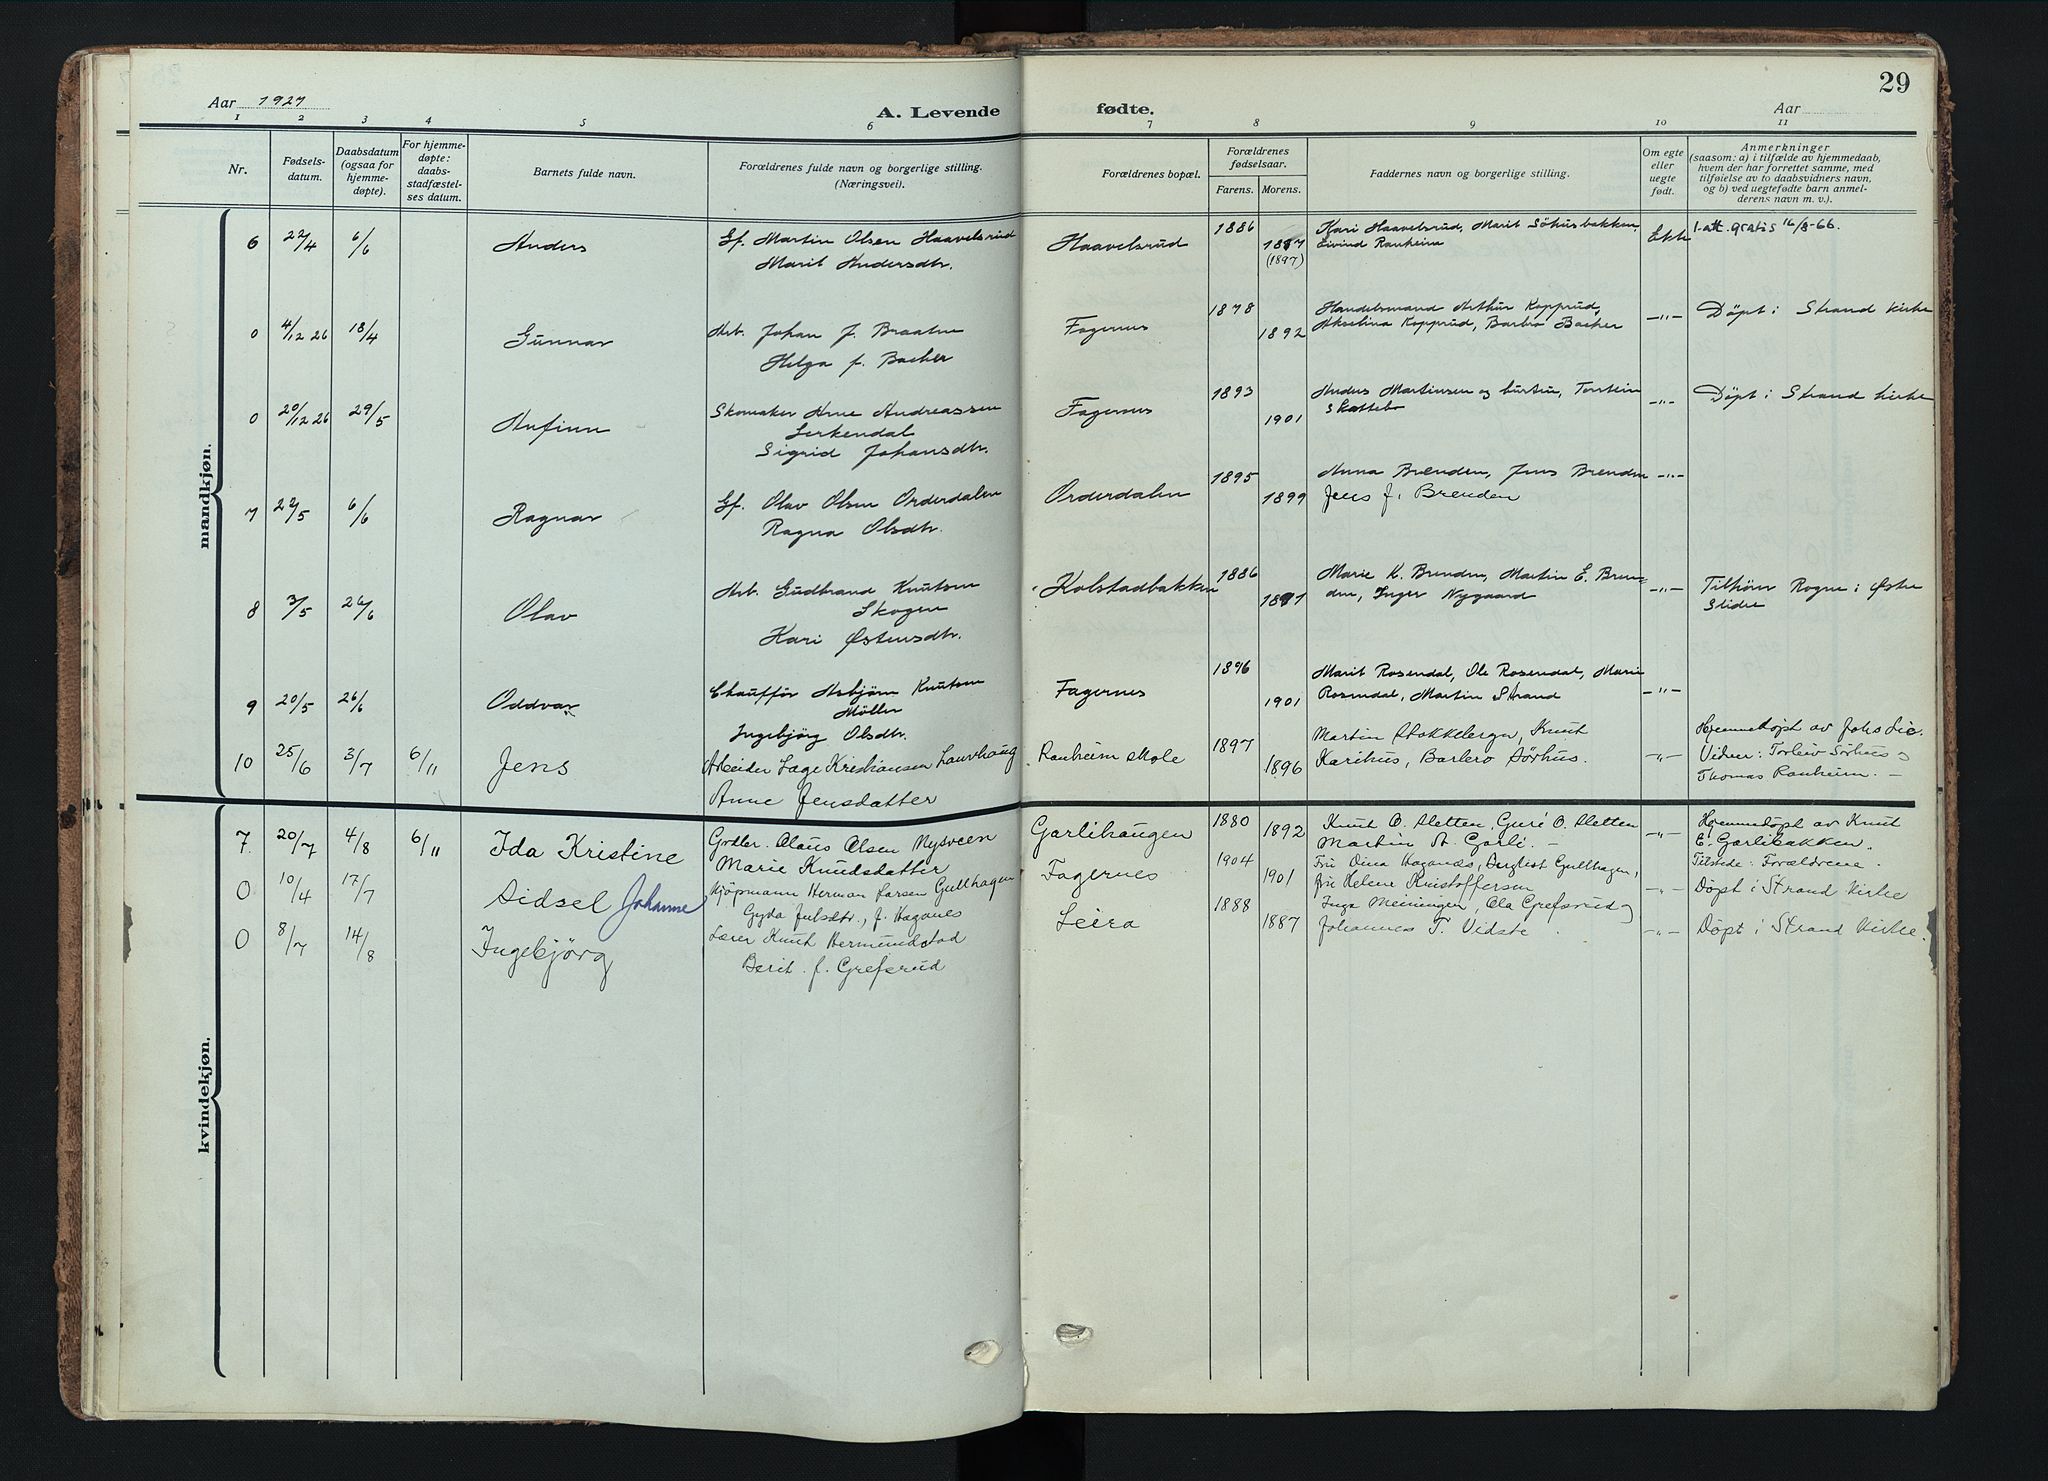 29
Aar 1927 A. Levende fødte. Aar
1 2 3 4 5 6 7 8 9 10 11
Nr. Fødsels-datum. Daabsdatum (ogsaa for hjemme-døpte). For hjemme-døpte: daabs-stadfæstel-ses datum. Barnets fulde navn. Forældrenes fulde navn og borgerlige stilling. (Næringsvei). Forældrenes bopæl. Forældrenes fødselsaar. Farens. Morens. Faddernes navn og borgerlige stilling. Om egte eller uegte født. Anmerkninger (saasom: a) i tilfælde av hjemmedaab, hvem der har forrettet samme, med tilføielse av to daabsvidners navn, og b) ved uegtefødte barn anmel-derens navn m. v.).
mandkjøn.
6 22/4 6/6 Anders Gf. Martin Olsen Haavelsrud Haavelsrud 1886 Kari Haavelsrud, Marit Söhusbakken, Ekte 1-att. gratis 16/8-66.
Marit Andersdtr. 1897 (1897) Eivind Ranheim
0 4/12 26 18/4 Gunnar Arb. Johan J. Braaten Fagernes 1878 Handelsmand Arthur Kopprud, -"- Döpt i Strand kirke
Helga f. Bacher 1892 Akselina Kopprud, Barbro Bacher
0 20/12 26 29/5 Anfinn Skomaker Arne Andreassen Fagernes 1893 Anders Martinsen og hustru, Torstein -"- Döpt i Strand kirke
Lerkendal 1901 Skattebo
Sigrid Johansdtr.
7 22/5 6/6 Ragnar Gf. Olav Olsen Orderdalen Orderdalen 1895 Anna Brenden, Jens Brenden -"-
Ragna Olsdtr. 1899 Jens J. Brenden
8 3/5 26/6 Olav Arb. Gudbrand Knutsen Kolstadbakken 1886 Marie K. Brenden, Martin E. Bren- -"- Tilhörer Rogne i Östre
Skogen 1891 den, Inger Nygaard Slidre
Kari Östensdtr.
9 20/5 26/6 Oddvar Chaufför Asbjörn Knutsen Fagernes 1896 Marit Rosendal, Ole Rosendal, Marie -"-
Möller 1901 Rosendal, Martin Strand
Ingebjörg Olsdtr.
10 25/6 3/7 6/11 Jens Arbeider Lage Kristiansen Lauvhaug Ranheim skole 1897 Martin Stokkeberg, Knut -"- Hjemmedöpt av Johs Lie.
Anne Jensdatter 1896 Karihus, Barbro Sørhus. Vidner: Torleiv Sørhus og
Thomas Ranheim. -
kvindekjøn.
7. 20/7 4/8 6/11 Ida Kristine Grdbr. Olaus Olsen Nysveen Garlihaugen 1880 1892 Knut O. Sletten, Guri O. Sletten -"- Hjemmedøpt av Knut
Marie Knudsdatter Martin A. Garli. - E. Garlibakken.
Tilstede: Forældrene.
0 10/4 17/7 Sidsel Johanne Kjøpmann Herman Larsen Gullhagen Fagernes 1904 1901 Fru Dina Haganes, Bergljot Gullhagen, -"- Døpt i Strand Kirke
Gyda Julsdtr., f. Haganes Fru Helene Kristoffersen
0 8/7 14/8 Ingebjörg Lærer Knut Hermundstad Leira 1888 1887 Inga Meiningen, Ola Grefsrud og -"- Døpt i Strand Kirke.
Berit f. Grefsrud Johannes T. Vidste